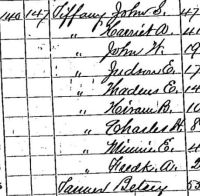 140 147 Tiffany John S. 47
" Harriet A. 4
" John W. 19
" Judson E. 17
" Thadeus E. 14
" Hiram B. 10
" Charles H. 8
" Minnie E. 4
" Fredk A. 2
Tanner Betsey 5